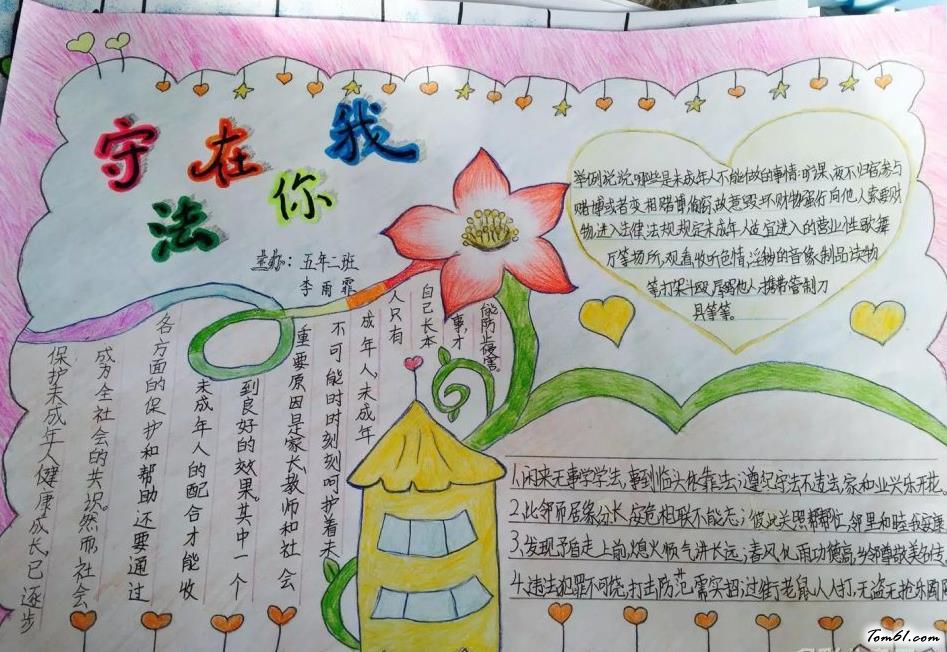 守 在 我
法 你
主办：五年二班
李雨霏
保护未成年人健康成长,已逐步
成为全社会的共识。然而,社会
各方面的保护和帮助还要通过
未成年人的配合才能收
到良好的效果。其中一个
重要原因是家长、教师和社会
不可能时时刻刻呵护着未
成年人,未成年
人只有
自己长本
事,才
能防止侵害。
举例说说哪些是未成年人不能做的事情:旷课、夜不归宿;参与
赌博或者变相赌博;偷窃、故意毁坏财物;强行向他人索要财
物;进入法律、法规规定未成年人不宜进入的营业性歌舞
厅等场所;观看、收听色情、淫秽的音像制品、读物
等;打架斗殴、辱骂他人;携带管制刀
具等等。
1.闲来无事学学法,事到临头依靠法;遵纪守法不违法,家和业兴乐开花
2.比邻而居缘分长,安危相联不能忘;彼此关照帮帮忙,邻里和睦我
3.发现矛盾走上前,熄火顺气讲长远;春风化雨功德高,乡邻尊敬美名
4.违法犯罪不可饶,打击防范需实招;过街老鼠人人打,无盗无抢乐
Tom61.com